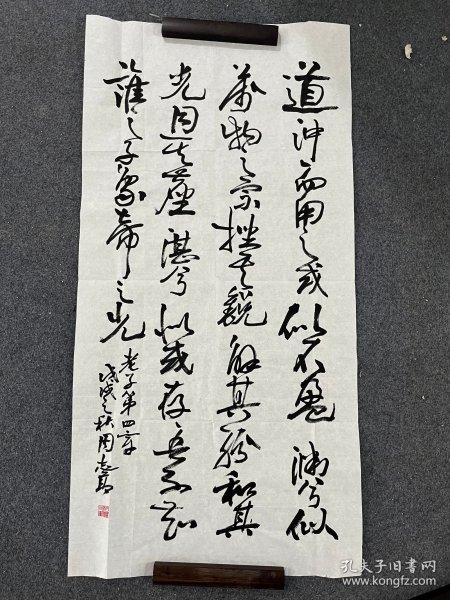 道沖而用之或似不盈渊兮似
萬物之宗挫其銳解其紛和其
光同其塵湛兮似或存吾不知
誰之子象帝之先
老子第四章
戊戌之秋周
孔夫子旧书网
www.kongfz.com